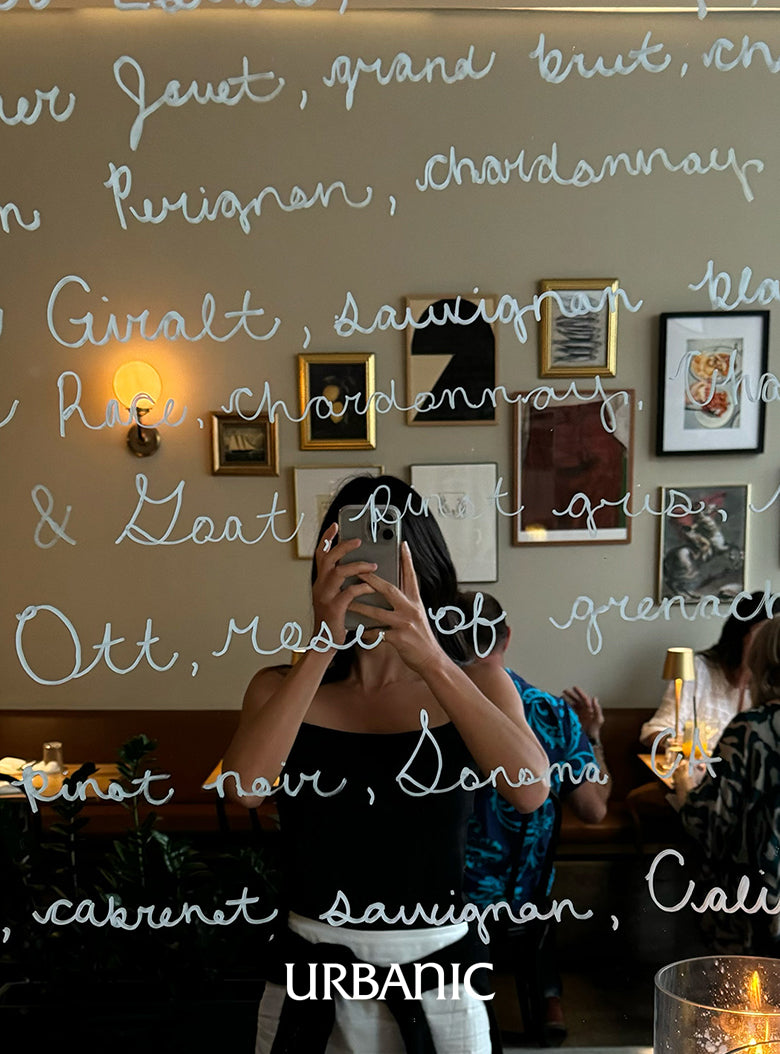 Jouet, grand brut, ch
Perignon, chardonnay
Giralt, sauvignon bla
Race, chardonnay, Cha
& Goat, pinot gris,
Ott, rosé of grenach
pinot noir, Sonoma CA
, cabrenet, sauvignon, Cali
URBANIC